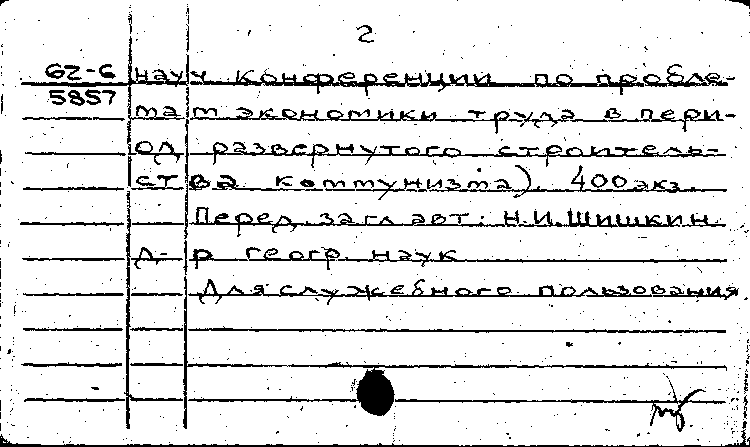 2
62-6 науч конференции по пробле-
5857 мам экономики труда в пери-
од развернутого строитель-
ства коммунизма). 400 экз.
Перед. загл авт: Н.И.Шишкин.
д-р геогр. наук
Для служебного пользования.